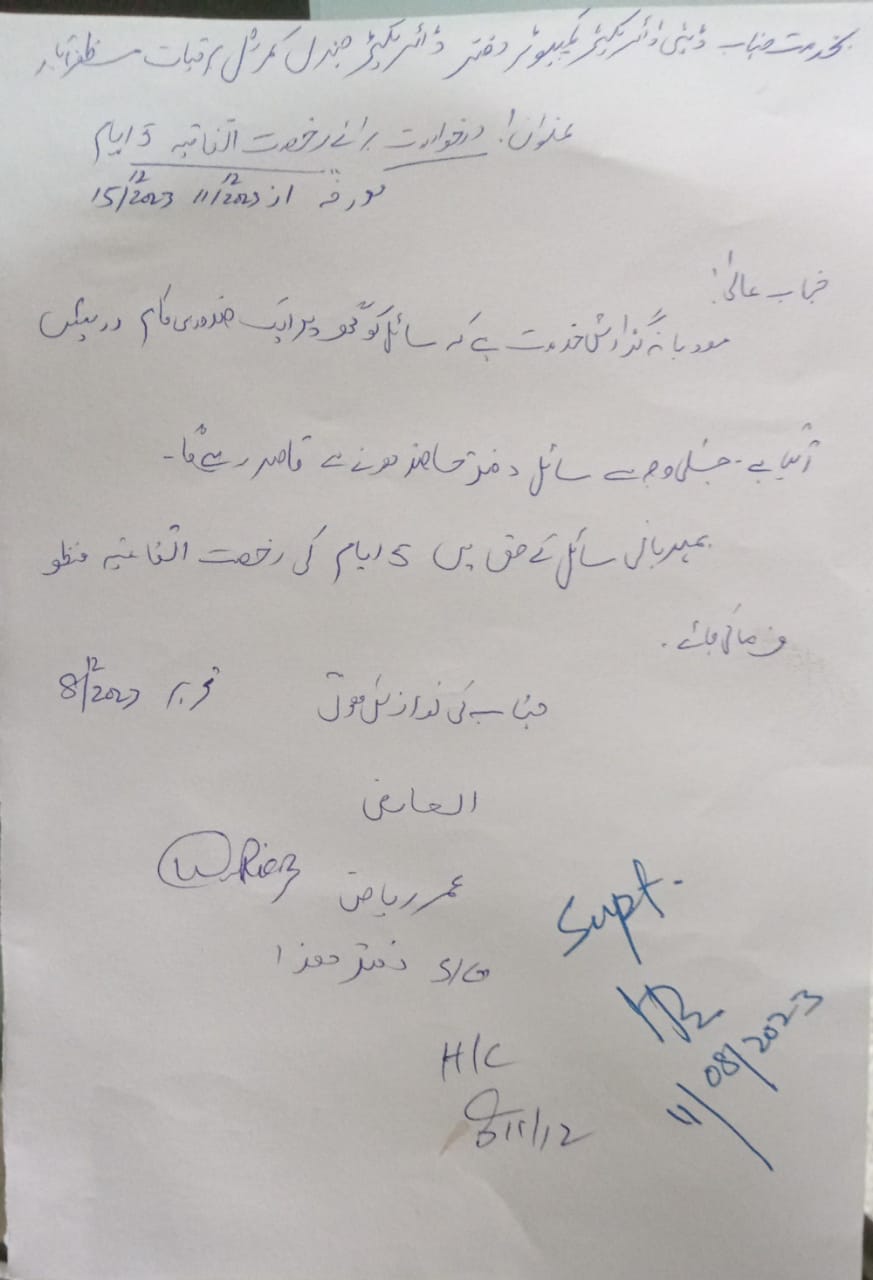 بخدمت جناب ڈپٹی ڈائریکٹر کمپیوٹر دفتر ڈائریکٹر جنرل کمرشل برقیات مظفرآباد
عنوان! درخواست برائے رخصت اتفاقیہ 5 ایام
مورخہ از 11/12/2023 15/12/2023
جناب عالیٰ!
مودبانہ گذارش خدمت ہے کہ سائل کو گھر پر ایک ضروری کام درپیش
آگیا ہے۔ جسکی وجہ سے سائل دفتر حاضر ہونے سے قاصر رہے گا۔
بمہربانی سائل کے حق میں 5 ایام کی رخصت اتفاقیہ منظو
فرمائی جائے۔
جناب کی نوازش ہوگی تحریر 8/12/2023
العارض
عمر ریاض
S/G دفتر ھذا
Supt.
11/08/2023
H/C
11/12